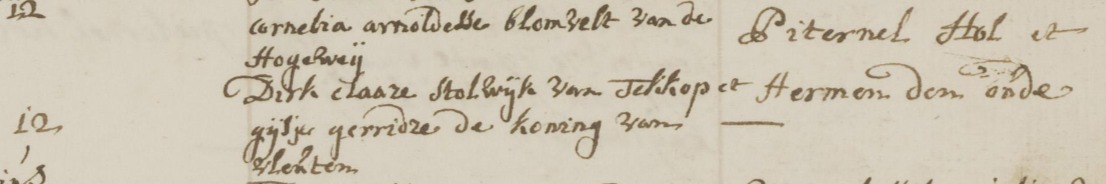 12 cornelia arnoldesse blomvelt van de Piternel Hol et
Hogelweij
Dirk claaze Stolwijk van Tekkop et Hermen den oude
12 gijsje gerridze de koning van
vleuten